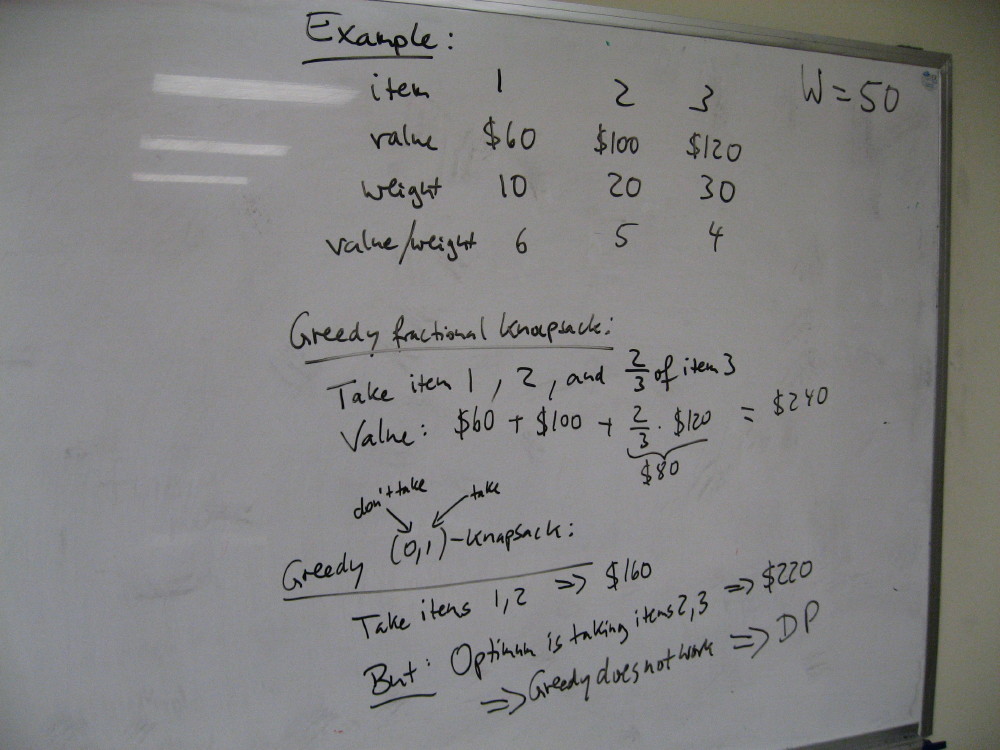 Example:
W = 50
item 1 2 3
value $60 $100 $120
weight 10 20 30
value/weight 6 5 4
Greedy fractional Knapsack:
Take item 1, 2, and 2/3 of item 3
Value: $60 + $100 + 2/3 · $120 = $240
$80
don't take take
Greedy (0,1)-Knapsack:
Take items 1,2 => $160
But: Optimum is taking items 2,3 => $220
=> Greedy does not work => DP